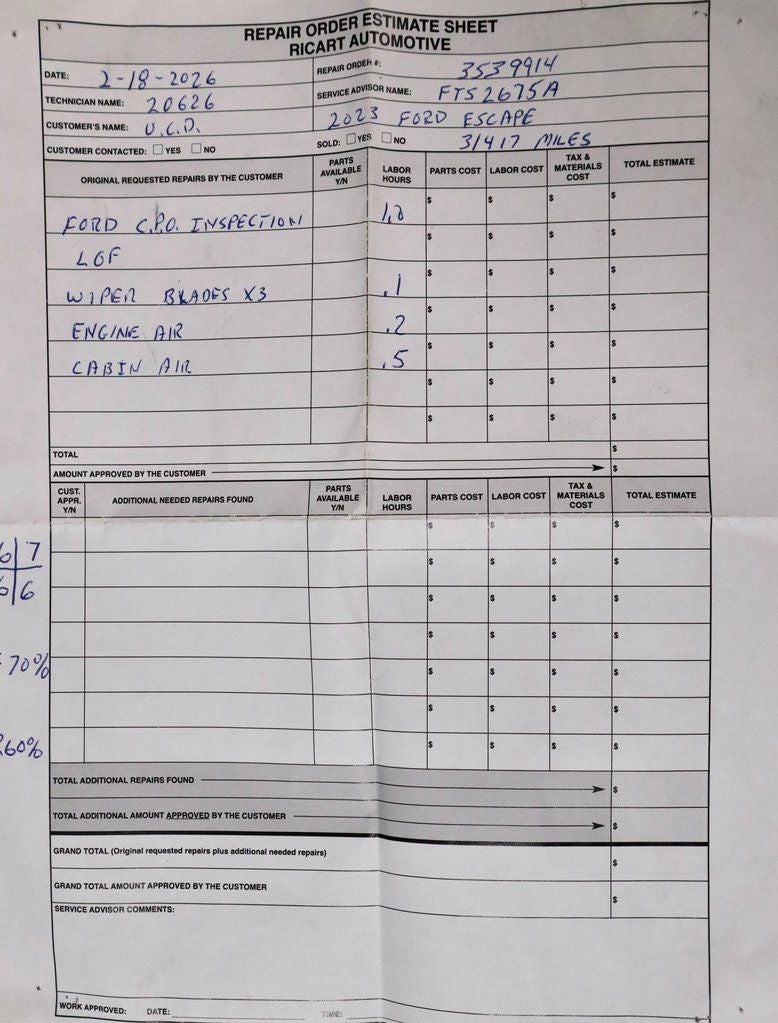 REPAIR ORDER ESTIMATE SHEET
RICART AUTOMOTIVE
DATE: 2-18-2026 REPAIR ORDER #: 3539914
TECHNICIAN NAME: 20626 SERVICE ADVISOR NAME: FTS2675A
CUSTOMER'S NAME: U.C.D. 2023 FORD ESCAPE
CUSTOMER CONTACTED: YES NO SOLD: YES NO 31417 MILES
ORIGINAL REQUESTED REPAIRS BY THE CUSTOMER PARTS AVAILABLE Y/N LABOR HOURS PARTS COST LABOR COST TAX & MATERIALS COST TOTAL ESTIMATE
FORD C.P.O. INSPECTION $ $ $ $
LOF $ $ $ $
WIPER BLADES X3 .1 $ $ $ $
ENGINE AIR .2 $ $ $ $
CABIN AIR .5 $ $ $ $
$ $ $ $
$ $ $ $
TOTAL $
AMOUNT APPROVED BY THE CUSTOMER $
CUST. APPR. Y/N ADDITIONAL NEEDED REPAIRS FOUND PARTS AVAILABLE Y/N LABOR HOURS PARTS COST LABOR COST TAX & MATERIALS COST TOTAL ESTIMATE
$ $ $ $
7
$ $ $ $
6
$ $ $ $
$ $ $ $
70%
$ $ $ $
$ $ $ $
60%
$ $ $ $
TOTAL ADDITIONAL REPAIRS FOUND $
TOTAL ADDITIONAL AMOUNT APPROVED BY THE CUSTOMER $
GRAND TOTAL (Original requested repairs plus additional needed repairs) $
GRAND TOTAL AMOUNT APPROVED BY THE CUSTOMER $
SERVICE ADVISOR COMMENTS:
WORK APPROVED: DATE: TIME: